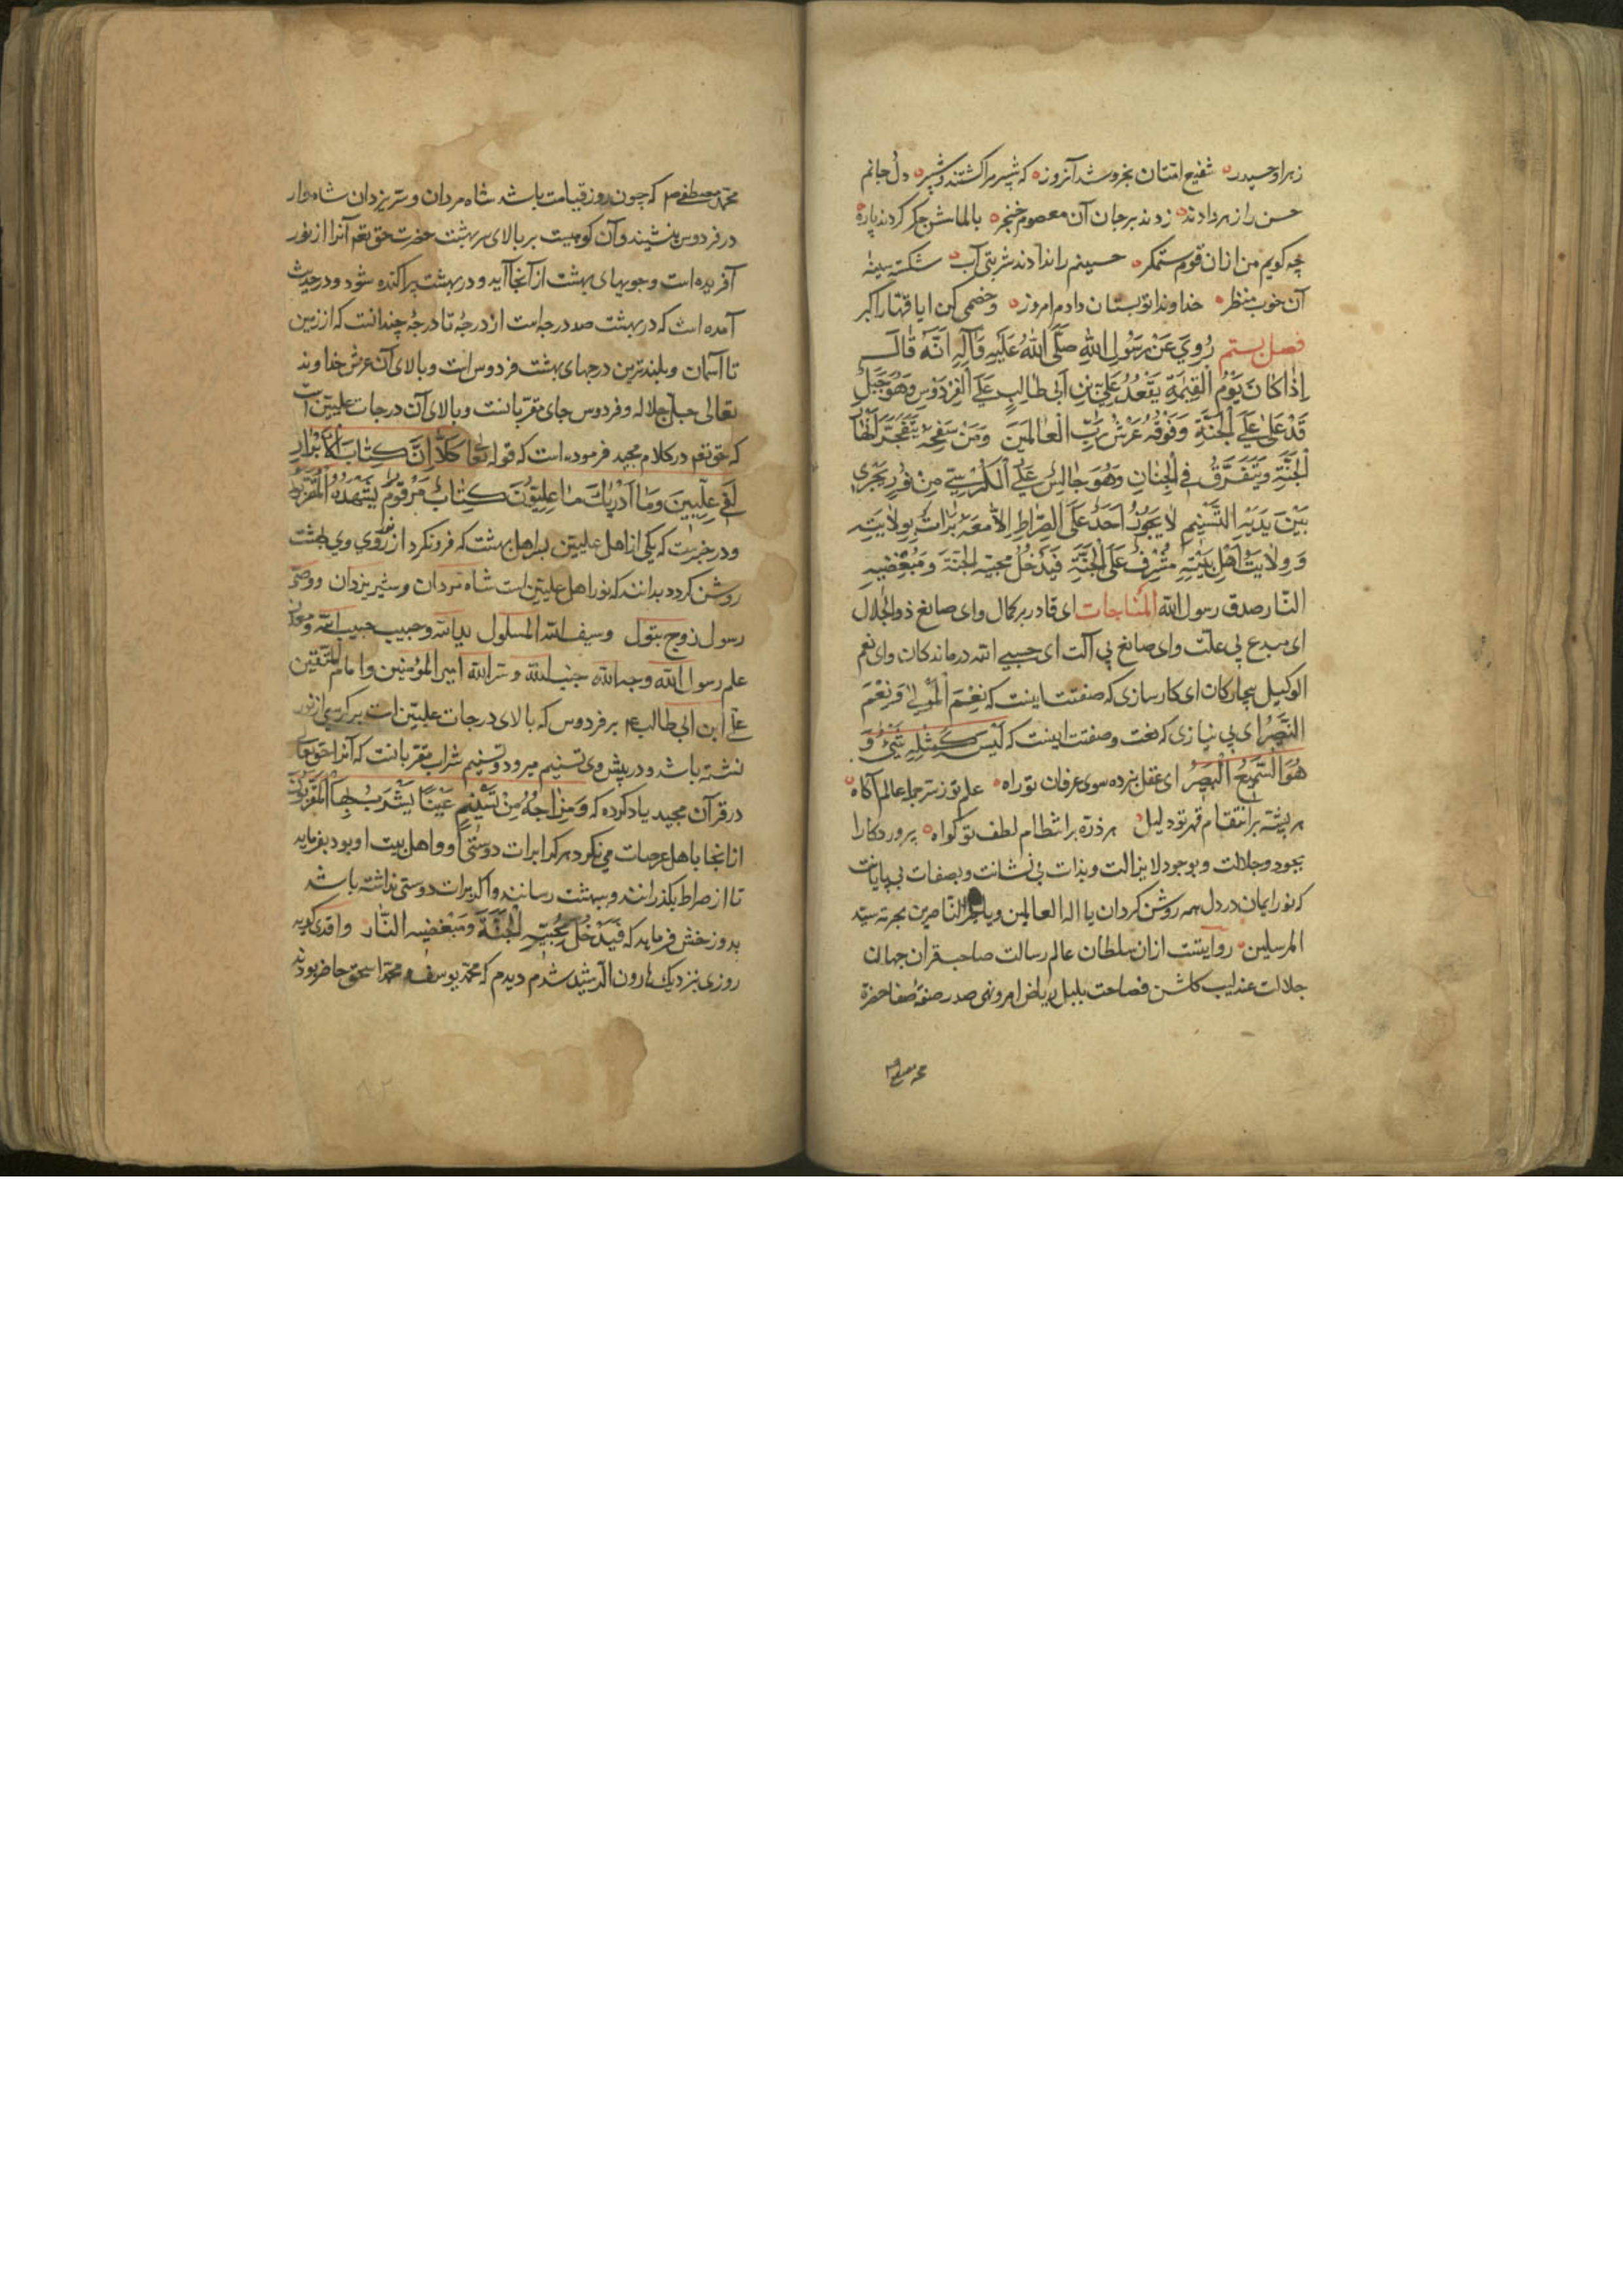 زهرا و حیدر شفیع امتان بخروشد آنروز که شبیر مرا کشتند و شبر دل جانم
حسن را زهر دادند زدند بر جان آن معصوم خنجر بالماسش جکر کردند پاره
چه کویم من ازان قوم ستمکر حسینم را ندادند شربتی آب شکسته سینه
آن خوب منظر خداوندا تو بستان دادم امروز وخصمی کن ایا قهار اکبر
فصل بستم رُوِيَ عَنْ رَسُولِ اللهِ صَلَّى اللهُ عَلَيْهِ وَآلِهِ اَنَّهُ قَالَ
اِذَا كَانَ يَوْمُ الْقِيٰمَةِ يَقْعُدُ عَلِيّ بْنِ اَبِي طَالِبٍ عَلَى الْفِرْدَوْسِ وَهُوَ جَبَلٌ
قَدْ عَلٰى عَلَى الْجَنَّةِ وَفَوْقَهُ عَرْشُ رَبِّ الْعَالَمِينَ وَمَنْ سَفْحِهِ يَتَفَجَّرُ اَنْهَارُ
الْجَنَّةِ وَيَتَفَرَّقُ فِي الْجِنَانِ وَهُوَ جَالِسٌ عَلَى الْكُرْسِيِّ مِنْ نُورٍ يَجْرِي
بَيْنَ يَدَيْهِ التَّسْنِيمِ لَا يَجُوزُ اَحَدٌ عَلَى الصِّرَاطِ اِلَّا مَعَهُ بَرَاتٌ بِوِلَايَتِهِ
وَوِلَايَتِ اَهْلِ بَيْتِهِ مُشْرِفٌ عَلَى الْجَنَّةِ فَيَدْخُلُ محبيه الجنة وَمُبْغِضِيهِ
النّار صدق رسول الله المُنَاجات ای قادر بر کمال وای صانع ذو الجلال
ای مبدع بی علّت وای صانع بی آلت ای حسبی الله درماندکان وای نعم
الوکیل بیچارکان ای کارسازی که صفتت اینست که نِعْمَ الْمَوْلٰى وَنِعْمَ
النَّصِيرُ ای بی نیازی که نعت وصفتت اینست که لَيْسَ كَمِثْلِهِ شَيْءٌ وَ
هُوَ السَّمِيعُ الْبَصِيرُ ای عقل نبرده سوی عرفان تو راه علم تو ز سر جمله عالم آکاه
هر پشّه بر انتقام قهر تو دلیل هر ذرّه بر انتظام لطف تو کواه پروردکارا
بجود وجلالت وبوجود لایزالت وبذات بی نشانت وبصفات بی پایانت
که نور ایمان در دل همه روشن کردان یا اله العالمین ویا خیر النّاصرین بحرمة سید
المرسلین روایتست ازان سلطان عالم رسالت صاحبقران جهان
جلالت عندلیب کلشن فصاحت بلبل ریاض امر ونهی صدر صفهٔ صفا حضرة
محمد مصطفی
محمد مصطفی که چون روز قیامت باشد شاه مردان و سریزدان شاه وار
در فردوس بنشیند وآن کوهیست بر بالای بهشت حضرت حق تعم آنرا از نور
آفریده است وجویهای بهشت از آنجا آید ودر بهشت پراکنده شود ودر حدیث
آمده است که در بهشت صد درجه است از درجهٔ تا درجهٔ چندانست که از زمین
تا آسمان وبلندترین درجهای بهشت فردوس است وبالای آن عرش خداوند
تعالی جلّ جلاله وفردوس جای مقربانست وبالای آن درجات علیین است
که حق تعم در کلام مجید فرموده است که قوله تعا كَلَّا اِنَّ كِتَابَ الْاَبْرَارِ
لَفِي عِلِّيِّينَ وَمَا اَدْرٰيكَ مَا عِلِيُّونَ كِتَابٌ مَرْقُومٌ يَشْهَدُهُ الْمُقَرَّبُونَ
ودر خبرست که یکی از اهل علیین بر اهل بهشت که فرو نکرد از نور روی وی بهشت
روشن کردد بدانند که نور اهل علیین است شاه مردان وشیر یزدان ووصی
رسول زوج بتول وسیف الله المسلول ید الله وحبیب حبیب الله ومعدن
علم رسول الله وجه الله جنب الله وسر الله امیر المؤمنین وامام المتقین
علی ابن ابی طالب بر فردوس که بالای درجات علیین است بر کرسی از نور
نشسته باشد ودر پیش وی تسنیم میرود وتسنیم شراب مقربانست که آنرا حق تعا
در قرآن مجید یاد کرده که وَمِزَاجُهُ مِنْ تَسْنِيمٍ عَيْنًا يَشْرَبُ بِهَا الْمُقَرَّبُونَ
از انجا باهل عرصات می نکرد هر کرا برات دوستی او واهل بیت او بود بفرماید
تا از صراط بکذرانند وببهشت رسانند واکر برات دوستی نداشته باشد
بدوزخش فرماید که فَيَدْخُلُ مُحِبِّيهِ الْجَنَّةَ وَمُبْغِضِيهِ النَّار واقدی کوید
روزی بنزدیک هارون الرشید شدم دیدم که محمد یوسف ومحمد اسحق حاضر بودند